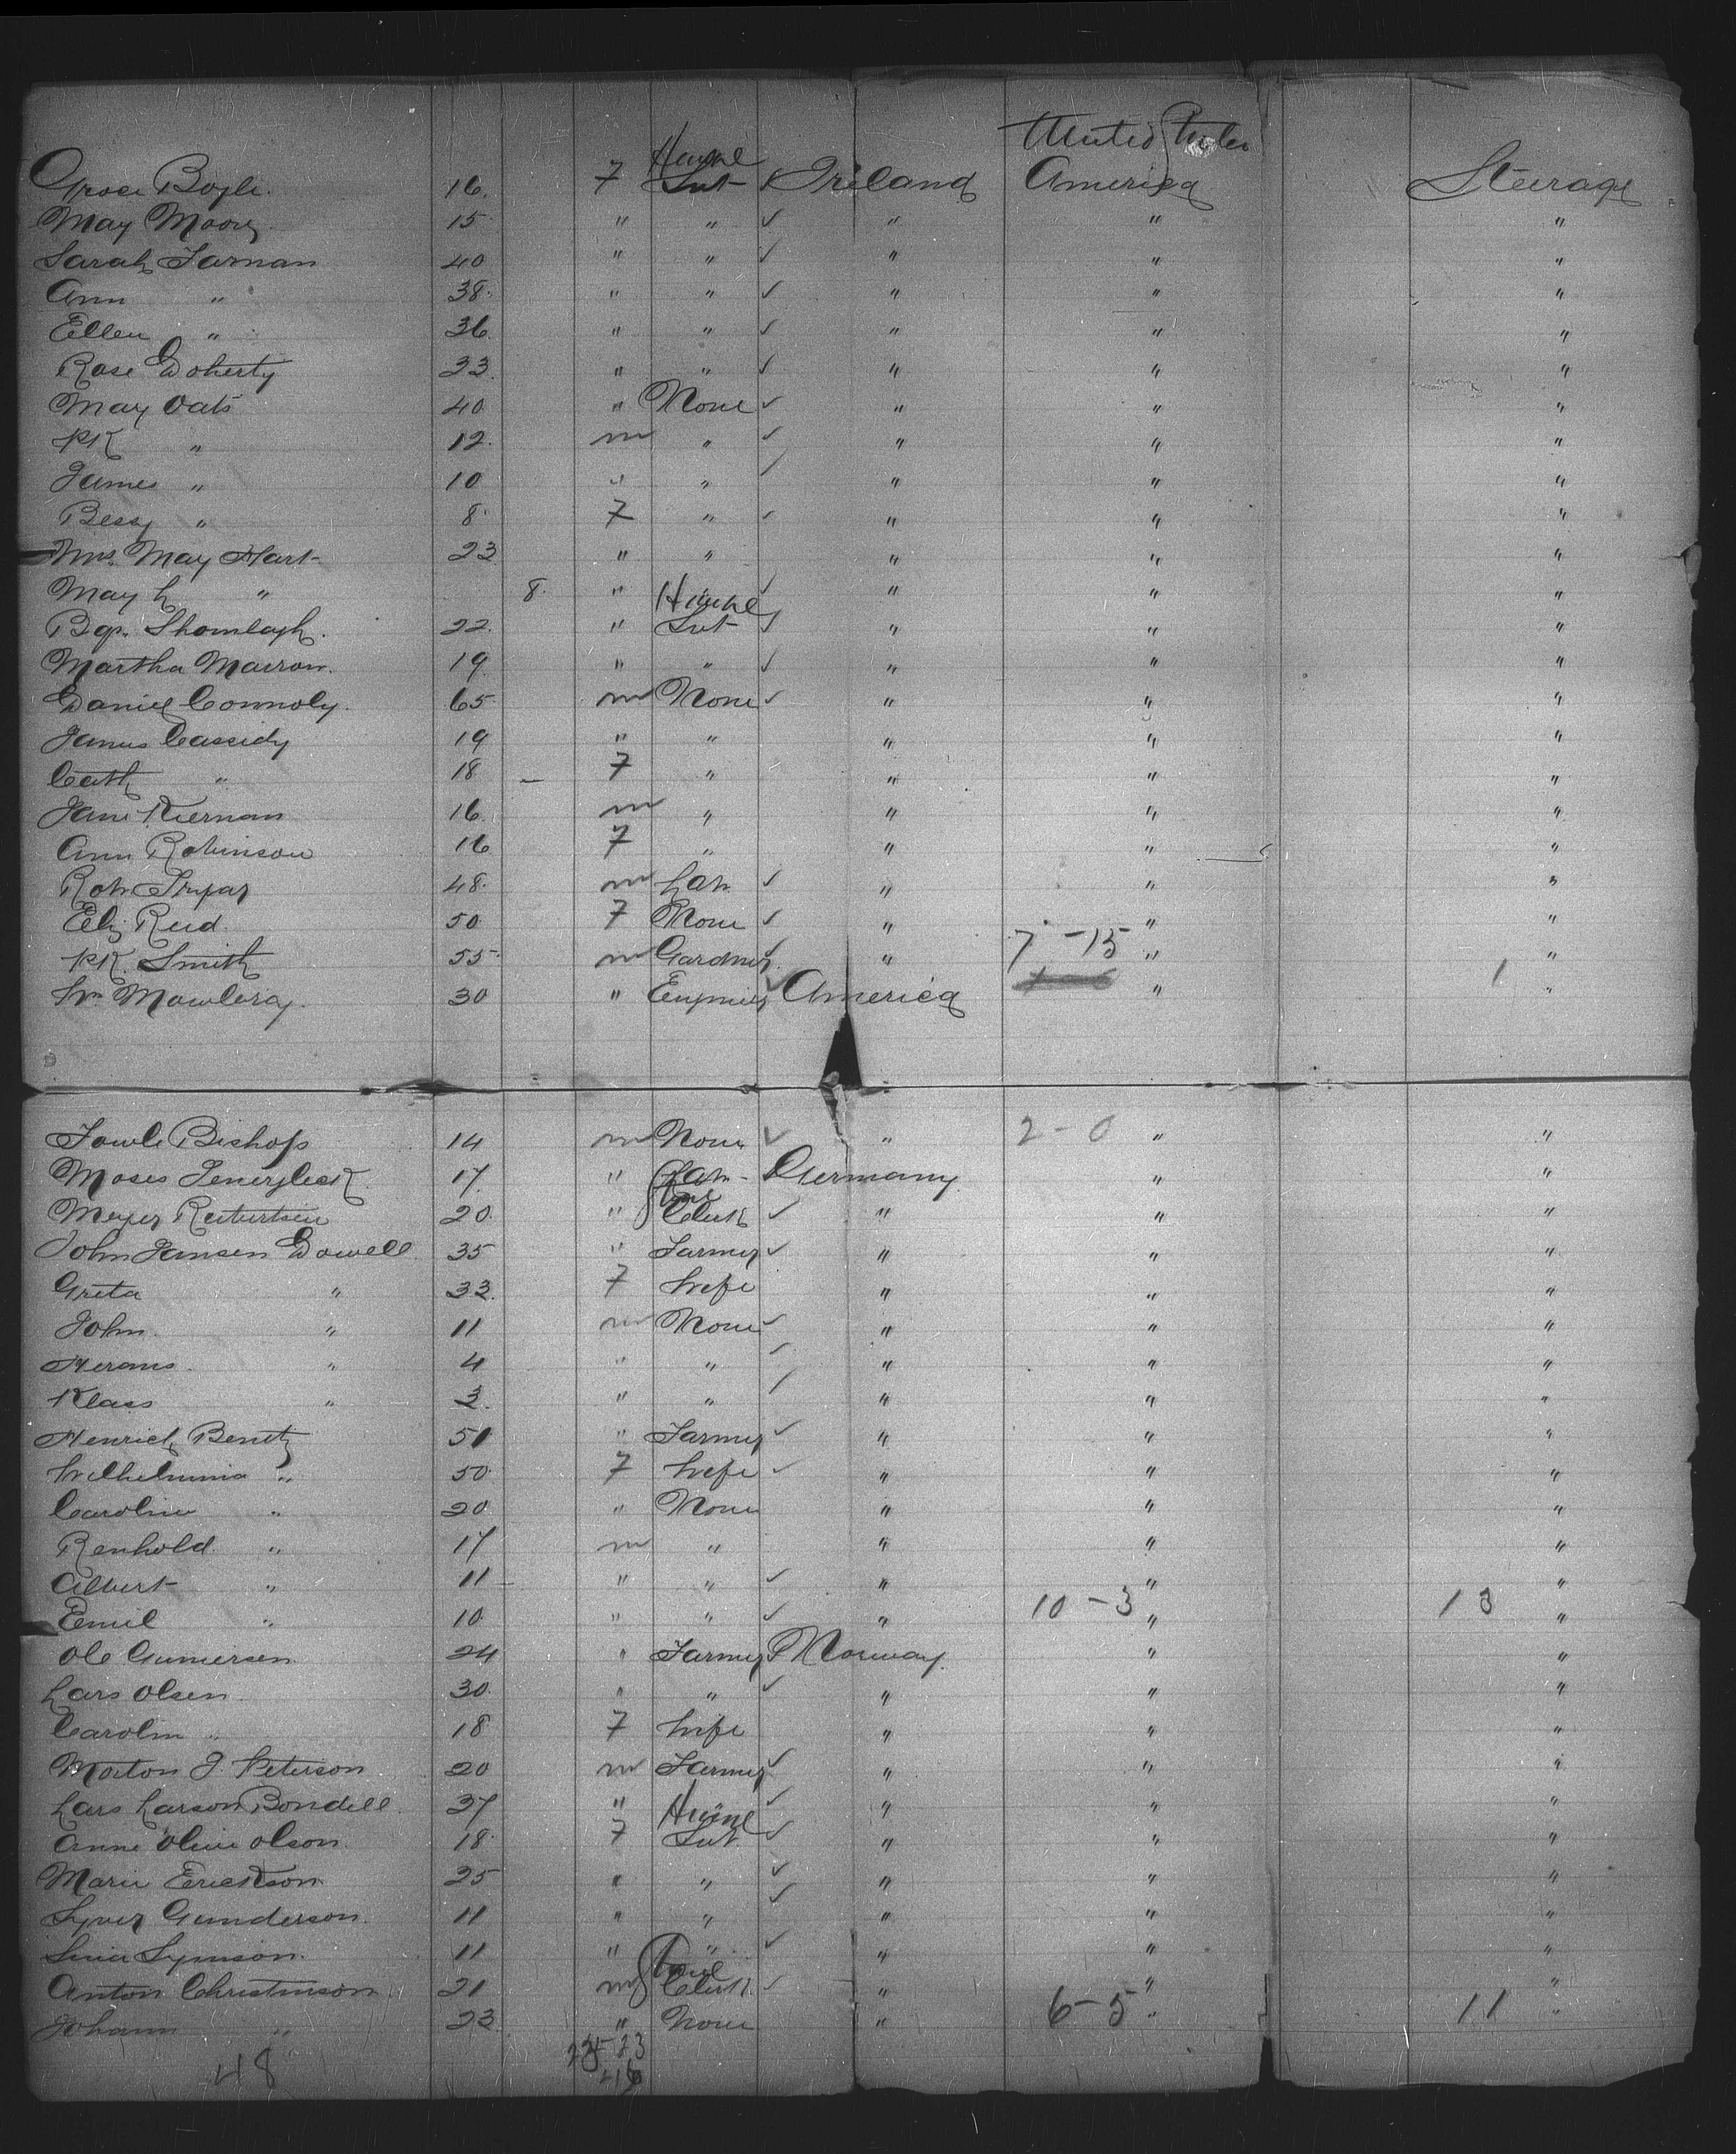 United States
Grace Boyle. 16. 7 House Svt Ireland America Steerage
May Moore. 15 " " " " "
Sarah Farnan 40 " " " " "
Ann " 38. " " " " "
Ellen " 36. " " " " "
Rose Doherty 23. " " " " "
May Oats 40 " None " " "
PK " 12. m " " " "
James " 10 " " " " "
Bessy " 8 7 " " " "
Mrs. May Hart 23 " " " " "
May " 8. " " " " "
22. " House Svt " " "
Martha Marron. 19. " " " " "
Daniel Connoly. 65 m None " " "
James Cassidy 19 " " " " "
Cath " 18 7 " " " "
Jane Kiernan 16. m " " " "
Ann Robinson 16 7 " " " "
48. m Lab " " "
Eliz Reid 50 7 None " " "
7 - 15
PK. Smith 55 m Gardner " " "
1
Wm 30 " Engineer America " "
Bishop 14 m None " 2 - 0 " "
Moses 17. " Lab Germany " "
Meyer 20. " Clerk " " "
John Jansen Dowell 35 " Farmer " " "
Greta " 33. 7 Wife " " "
John. " 11 m None " " "
" 4 " " " " "
Klass " 3. " " " " "
Henrich Bentz 51 " Farmer " " "
Wilhelmina " 50. 7 Wife " " "
Caroline " 20 " None " " "
Renhold. " 17 m " " " "
Albert " 11 " " " " "
Emil " 10. " " " 10 - 3 " 13 "
Ole Gunnersen 24 " Farmer Norway. " "
Lars Olsen. 30. " " " " "
Carolin " 18 7 Wife " " "
Morton J. Peterson 20 m Farmer " " "
Lars Larson Bondell. 37 " " " " "
Anne Oline Olson. 18. 7 House Svt. " " "
Marie Erickson 25 " " " " "
Gunderson. 11 " " " " "
11 " " " " "
Anton Christinson 21 m Clerk " " "
Johann " 23 " None " 6 - 5 " 11 "
23
48